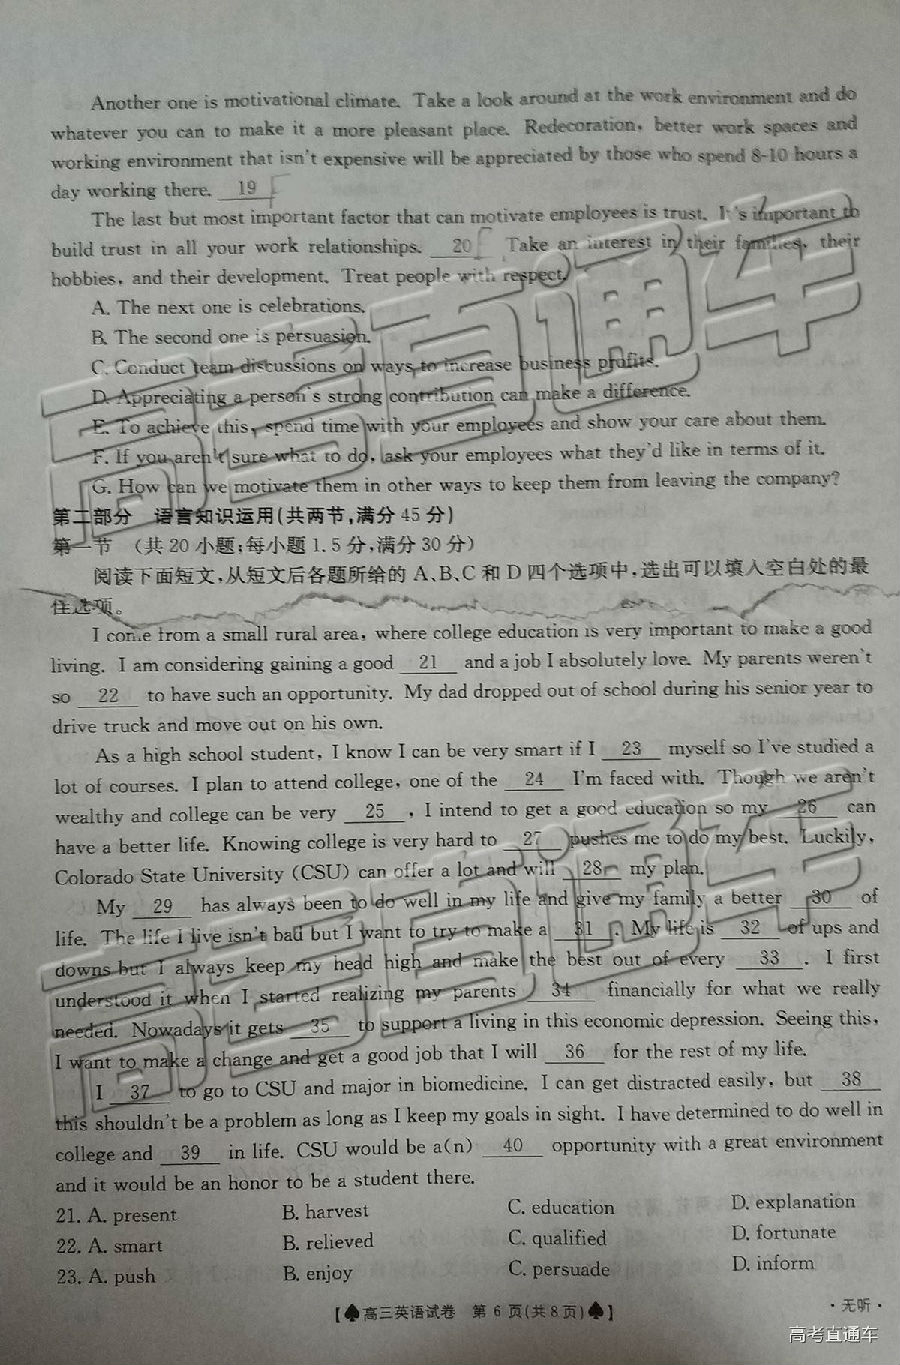 Another one is motivational climate. Take a look around at the work environment and do
whatever you can to make it a more pleasant place. Redecoration, better work spaces and
working environment that isn't expensive will be appreciated by those who spend 8-10 hours a
day working there. 19
The last but most important factor that can motivate employees is trust. It's important to
build trust in all your work relationships. 20 Take an interest in their families, their
hobbies, and their development. Treat people with respect.
A. The next one is celebrations.
B. The second one is persuasion.
C. Conduct team discussions on ways to increase business profits.
D. Appreciating a person's strong contribution can make a difference.
E. To achieve this, spend time with your employees and show your care about them.
F. If you aren't sure what to do, ask your employees what they'd like in terms of it.
G. How can we motivate them in other ways to keep them from leaving the company?
第二部分 语言知识运用(共两节,满分 45 分)
第一节 (共 20 小题;每小题 1.5 分,满分 30 分)
阅读下面短文,从短文后各题所给的 A、B、C 和 D 四个选项中,选出可以填入空白处的最
佳选项。
I come from a small rural area, where college education is very important to make a good
living. I am considering gaining a good 21 and a job I absolutely love. My parents weren't
so 22 to have such an opportunity. My dad dropped out of school during his senior year to
drive truck and move out on his own.
As a high school student, I know I can be very smart if I 23 myself so I've studied a
lot of courses. I plan to attend college, one of the 24 I'm faced with. Though we aren't
wealthy and college can be very 25 , I intend to get a good education so my 26 can
have a better life. Knowing college is very hard to 27 pushes me to do my best. Luckily,
Colorado State University (CSU) can offer a lot and will 28 my plan.
My 29 has always been to do well in my life and give my family a better 30 of
life. The life I live isn't bad but I want to try to make a 31 . My life is 32 of ups and
downs but I always keep my head high and make the best out of every 33 . I first
understood it when I started realizing my parents 34 financially for what we really
needed. Nowadays it gets 35 to support a living in this economic depression. Seeing this,
I want to make a change and get a good job that I will 36 for the rest of my life.
I 37 to go to CSU and major in biomedicine. I can get distracted easily, but 38
this shouldn't be a problem as long as I keep my goals in sight. I have determined to do well in
college and 39 in life. CSU would be a(n) 40 opportunity with a great environment
and it would be an honor to be a student there.
21. A. present B. harvest C. education D. explanation
22. A. smart B. relieved C. qualified D. fortunate
23. A. push B. enjoy C. persuade D. inform
【♠高三英语试卷 第 6 页(共 8 页)♠】
·无听·
高考直通车
高考直通车
高考直通车